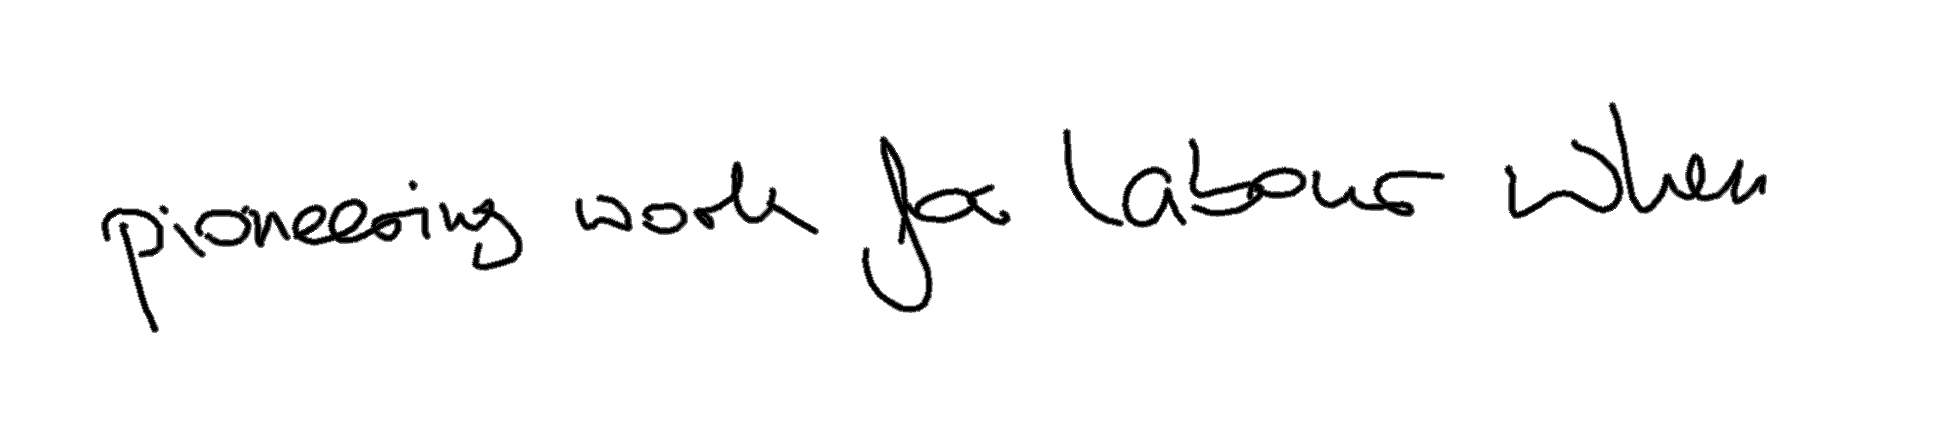 pioneering work for Labour when